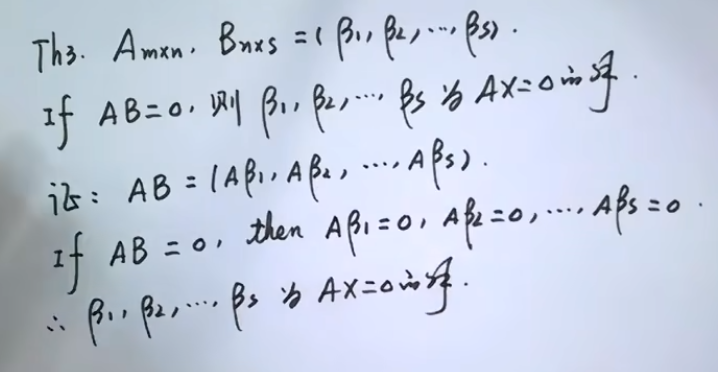 Th3. Am×n, Bn×s = (β1, β2, ⋯, βs).
If AB=0, 则 β1, β2, ⋯ βs 为 AX=0 的解.
证: AB = (Aβ1, Aβ2, ⋯, Aβs).
If AB = 0, then Aβ1=0, Aβ2=0, ⋯, Aβs=0.
∴ β1, β2, ⋯, βs 为 AX=0 的解.